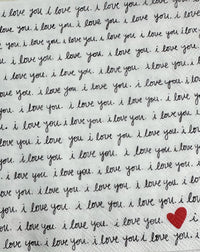 i love you. i love you. i love you. i love you.
i love you. i love you. i love you. i love you. i love
you. i love you. i love you. i love you. i love you.
i love you. i love you. i love you. i love you.
love you. i love you. i love you. i love you. i
i love you. i love you. i love you. i love you.
you. i love you. i love you. i love you. i love
i love you. i love you. i love you. i love you.
love you. i love you. i love you. i love you.
you. i love you. i love you. i love you. i love
i love you. i love you. i love you. i love you.
i love you. i love you. i love you. i love you.
you. i love you. i love you. i love you. i love
i love you. i love you. i love you.
love you. i love you. i love you. i love you.